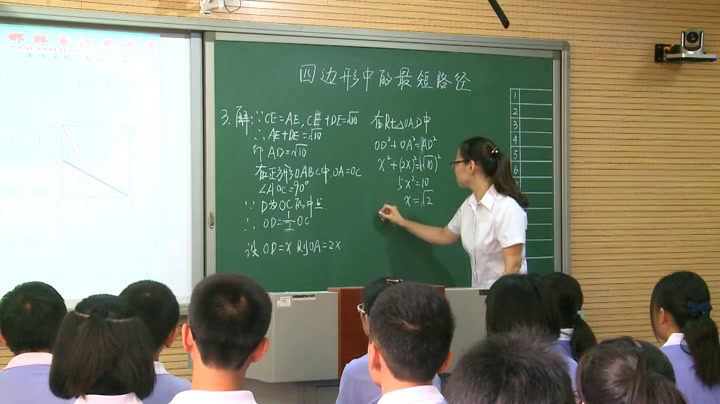 四边形中的最短路径
3.解:∵CE=AE,CE+DE=√10
∴AE+DE=√10
即AD=√10
在正方形OABC中,OA=OC
∠AOC=90°
∵D为OC的中点
∴OD=1/2OC
设OD=x则OA=2x
在Rt△OAD中
OD²+OA²=AD²
x²+(2x)²=(√10)²
5x²=10
x=√2
1
2
3
4
5
6